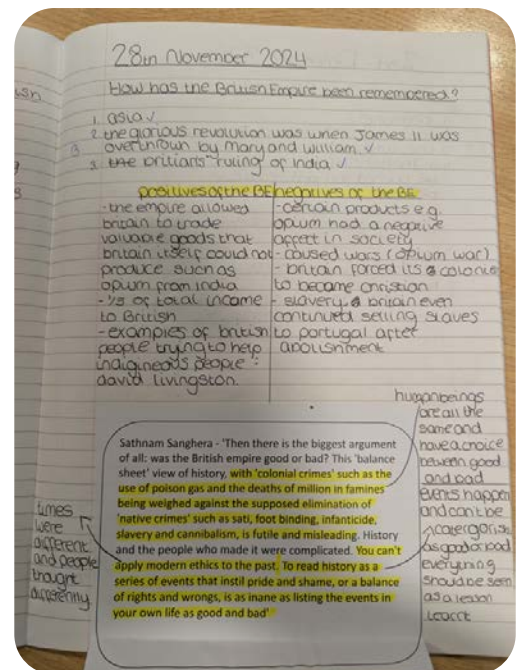 28th November 2024
How has the British Empire been remembered?
1. asia ✓
2. the glorious revolution was when James II was
overthrown by Mary and William. ✓
3. the britians ruling of India ✓
positives of the BE
-the empire allowed
britain to trade
valuable goods that
britain itself could not
produce such as
opium from india
- 1/3 of total income
to British
-examples of british
people trying to help
indigineous people :
david livingston.
negitives of the BE
-certain products e.g.
opium had a negative
affect in society
- caused wars (opium war)
- britain forced its colonies
to become christian
- slavery & britain even
continued selling slaves
to portugal after
abolishment
Sathnam Sanghera - 'Then there is the biggest argument
of all: was the British empire good or bad? This 'balance
sheet' view of history, with 'colonial crimes' such as the
use of poison gas and the deaths of million in famines
being weighed against the supposed elimination of
'native crimes' such as sati, foot binding, infanticide,
slavery and cannibalism, is futile and misleading. History
and the people who made it were complicated. You can't
apply modern ethics to the past. To read history as a
series of events that instil pride and shame, or a balance
of rights and wrongs, is as inane as listing the events in
your own life as good and bad'
times
were
different
and people
thought
differently
human beings
are all the
same and
have a choice
between good
and bad
events happen
and cant be
as good or bad
everything
should be seen
as a lesson